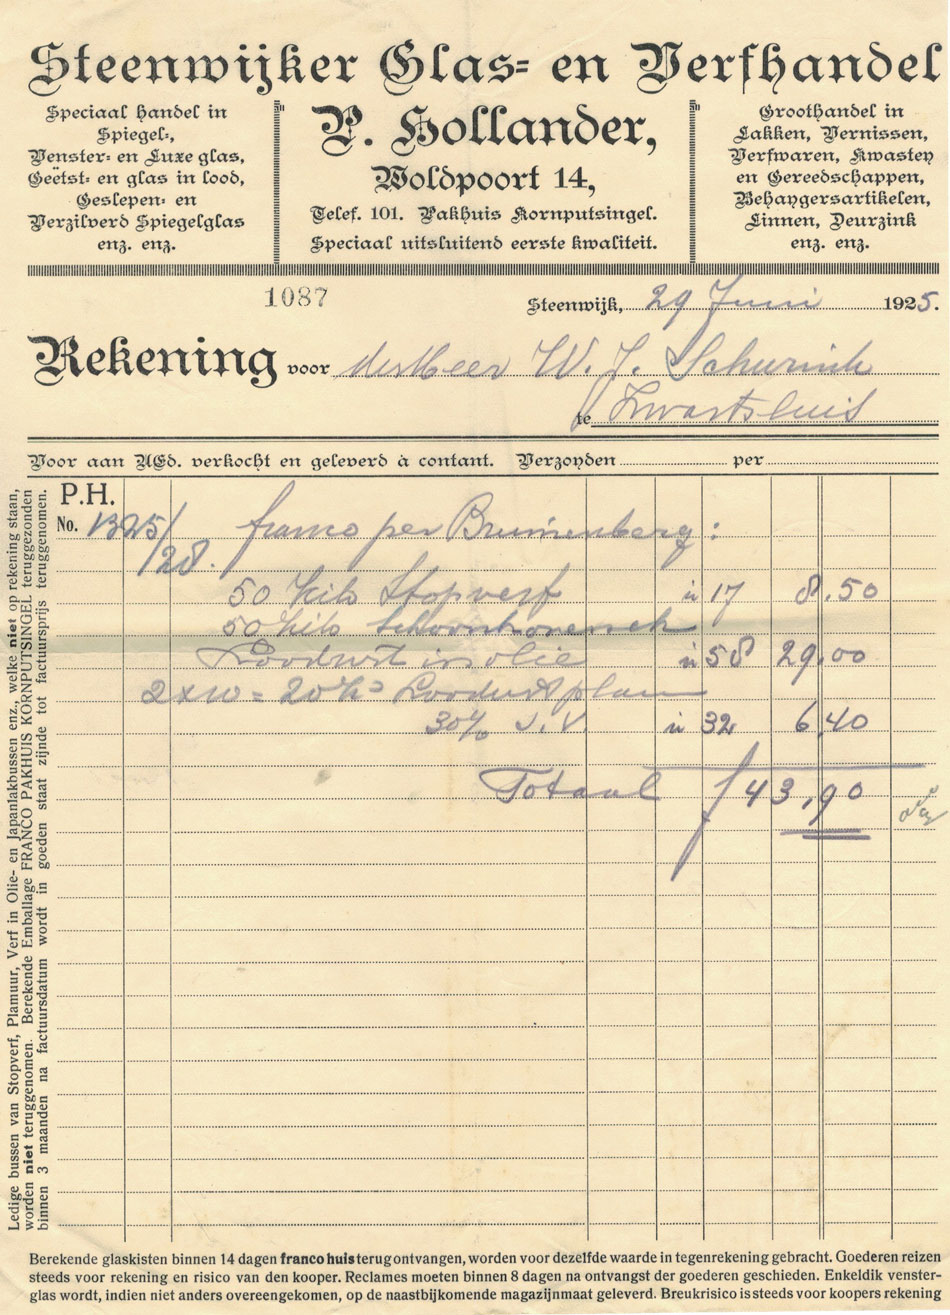 Steenwijker Glas= en Verfhandel
Speciaal handel in
Spiegel-,
Venster- en Luxe glas,
Geëtst- en glas in lood,
Geslepen- en
Verzilverd Spiegelglas
enz. enz.
P. Hollander,
Woldpoort 14,
Telef. 101. Pakhuis Kornputsingel.
Speciaal uitsluitend eerste kwaliteit.
Groothandel in
Lakken, Vernissen,
Verfwaren, Kwasten
en Gereedschappen,
Behangersartikelen,
Linnen, Deurzink
enz. enz.
1087
Steenwijk, 29 Juni 1925.
Rekening voor W. J. Schurink
te Zwartsluis
Voor aan UEd. verkocht en geleverd à contant. Verzonden per
P.H.
No. 1325/28. franco per :
50 Kilo Stopverf à 17 8.50
50 Kilo
Loodwit in olie à 58 29.00
2x10 = 20 Ko Loodwit plam
30% à 32 6.40
Totaal f 43,90
Ledige bussen van Stopverf, Plamuur, Verf in Olie- en Japanlakbussen enz., welke niet op rekening staan,
worden niet teruggenomen. Berekende Emballage FRANCO PAKHUIS KORNPUTSINGEL teruggezonden
binnen 3 maanden na factuursdatum wordt in goeden staat zijnde tot factuursprijs teruggenomen.
Berekende glaskisten binnen 14 dagen franco huis terug ontvangen, worden voor dezelfde waarde in tegenrekening gebracht. Goederen reizen
steeds voor rekening en risico van den kooper. Reclames moeten binnen 8 dagen na ontvangst der goederen geschieden. Enkeldik venster-
glas wordt, indien niet anders overeengekomen, op de naastbijkomende magazijnmaat geleverd. Breukrisico is steeds voor koopers rekening